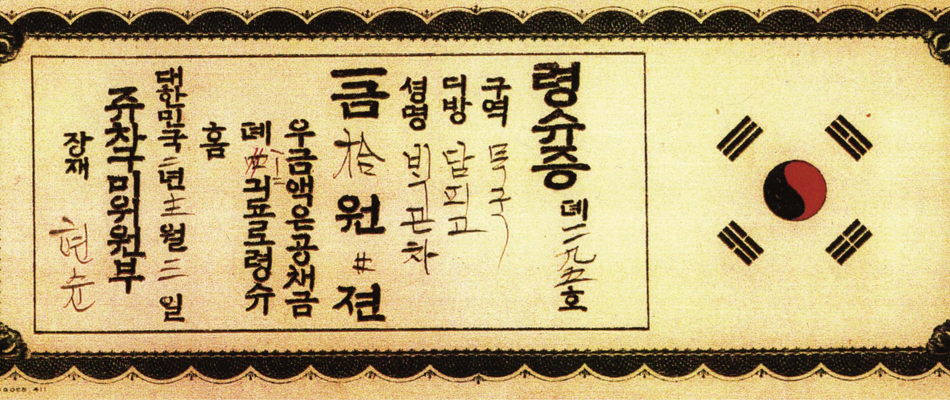 령슈증
뎨二九五호
구역 묵국
디방 담피고
셩명
금拾원 # 젼
우금액은공채금
뎨 긔표로령슈
홈
대한민국二년 월三일
쥬찰구미위원부
장재 현슌